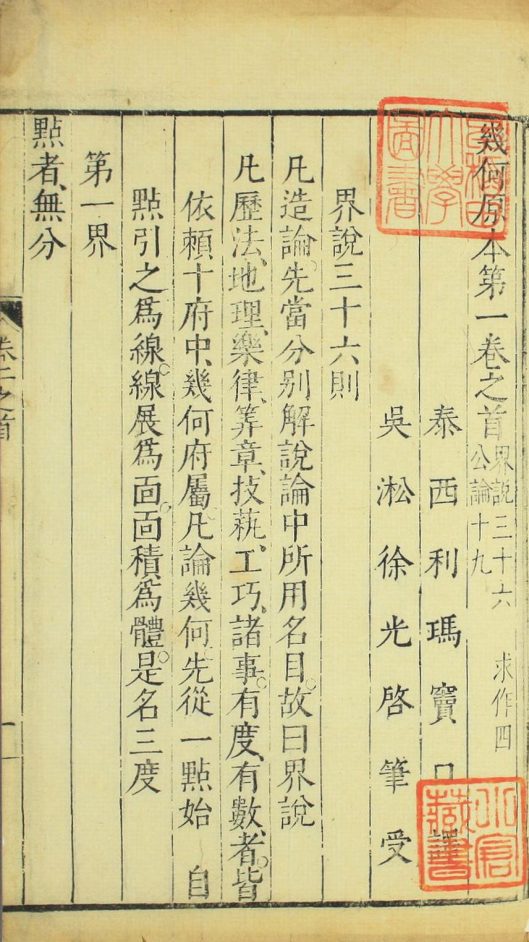 幾何原本第一卷之首 界說三十六 求作四
公論十九
泰西利瑪竇口譯
吳淞徐光啓筆受
界說三十六則
凡造論先當分別解說論中所用名目。故曰界說
凡歷法、地理、樂律、筭章、技藝、工巧、諸事。有度、有數、者。皆
依賴十府中、幾何府屬凡論幾何先從一點始 自
點引之爲線。線展爲面。面積爲體。是名三度
第一界
點者、無分
卷一之首
一